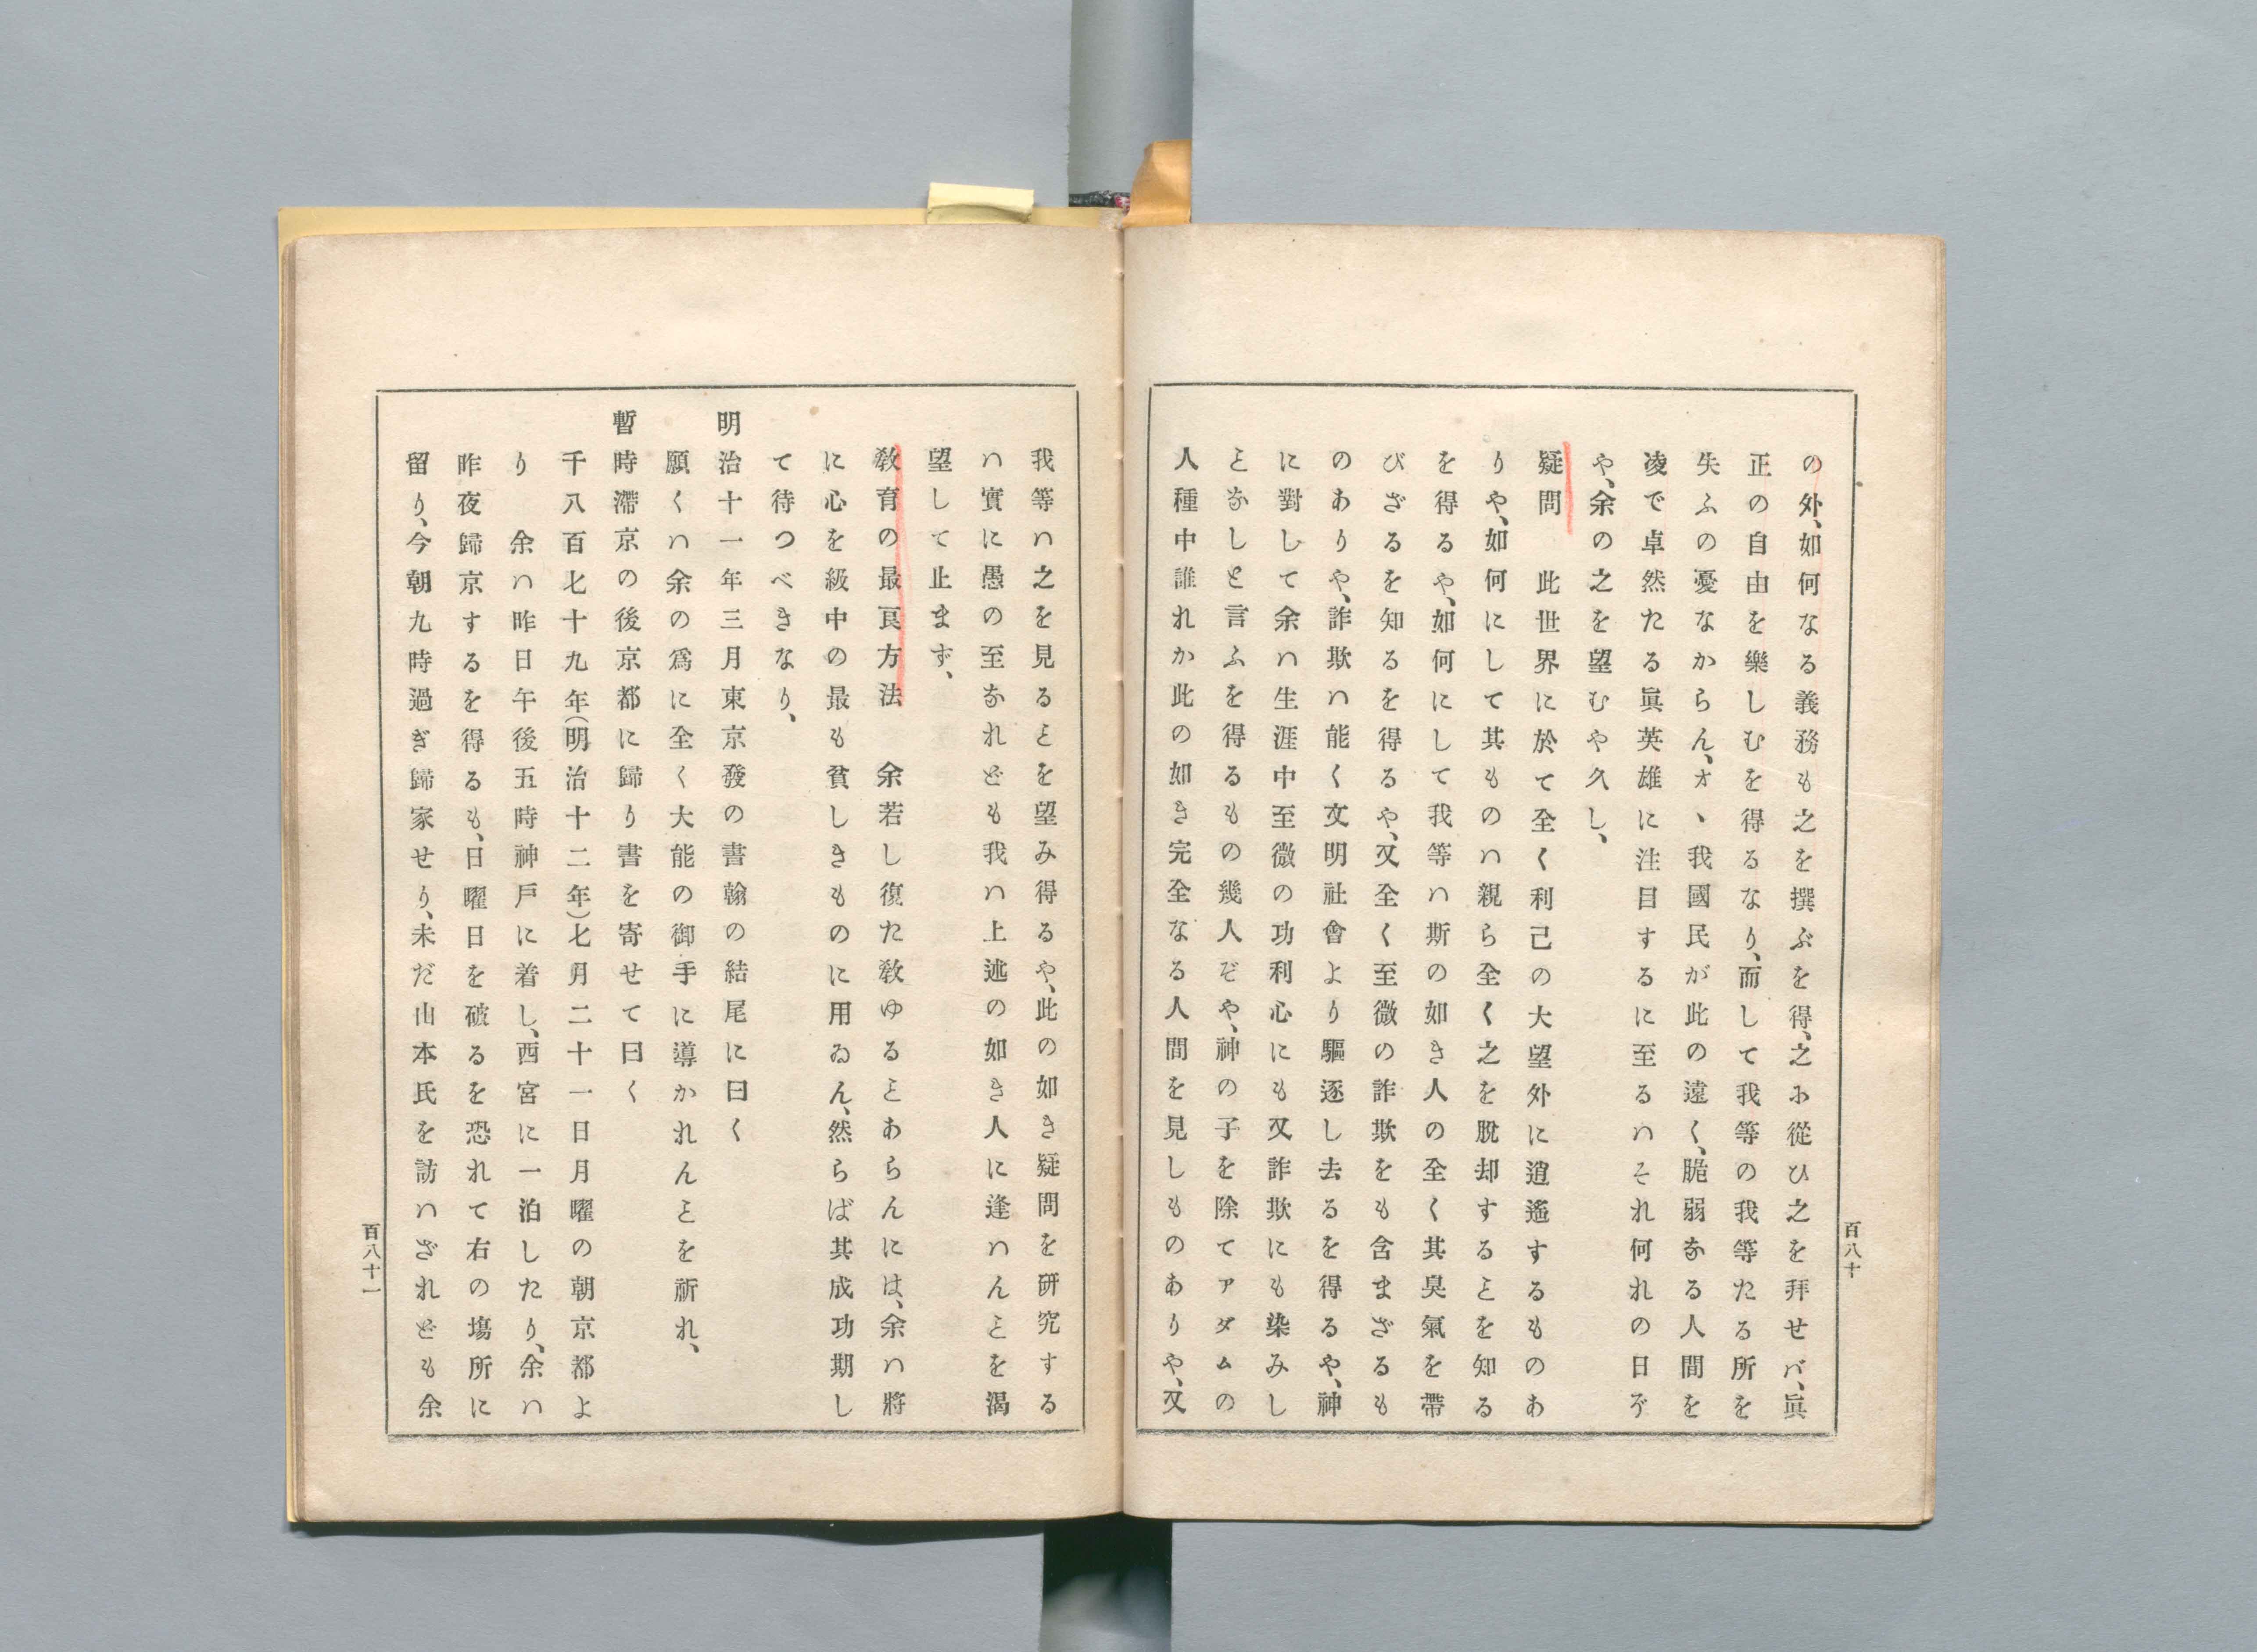 の外、如何なる義務も之を撰ぶを得、之に從ひ之を拜せバ、眞
正の自由を樂しむを得るなり、而して我等の我等たる所を
失ふの憂なからん、オヽ我國民が此の遠く、脆弱なる人間を
凌で卓然たる眞英雄に注目するに至るハそれ何れの日ぞ
や、余の之を望むや久し、
疑問　此世界に於て全く利己の大望外に逍遙するものあ
りや、如何にして其ものハ親ら全く之を脫却するヿを知る
を得るや、如何にして我等ハ斯の如き人の全く其臭氣を帶
びざるを知るを得るや、又全く至微の詐欺をも含まざるも
のありや、詐欺ハ能く文明社會より驅逐し去るを得るや、神
に對して余ハ生涯中至微の功利心にも又詐欺にも染みし
ヿなしと言ふを得るもの幾人ぞや、神の子を除てアダムの
人種中誰れか此の如き完全なる人間を見しものありや、又
百八十
我等ハ之を見るヿを望み得るや、此の如き疑問を研究する
ハ實に愚の至なれども我ハ上述の如き人に逢ハんヿを渴
望して止まず、
敎育の最良方法　余若し復た敎ゆるヿあらんには、余ハ將
に心を級中の最も貧しきものに用ゐん、然らば其成功期し
て待つべきなり、
明治十一年三月東京發の書翰の結尾に曰く
願くハ余の爲に全く大能の御手に導かれんヿを祈れ、
暫時滯京の後京都に歸り書を寄せて曰く
千八百七十九年(明治十二年)七月二十一日月曜の朝京都よ
り　余ハ昨日午後五時神戶に着し、西宮に一泊したり、余ハ
昨夜歸京するを得るも、日曜日を破るを恐れて右の塲所に
留り、今朝九時過ぎ歸家せり、未だ山本氏を訪ハざれども余
百八十一